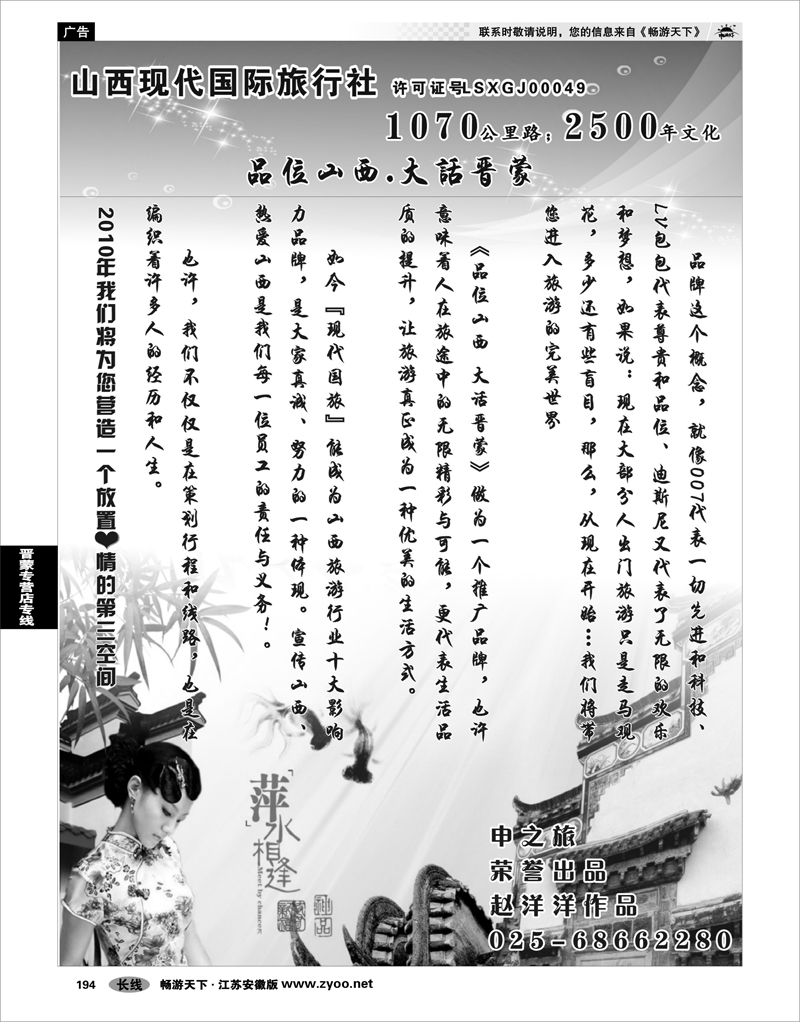 广告
联系时敬请说明，您的信息来自《畅游天下》
山西现代国际旅行社 许可证号LSXGJ00049
1070公里路；2500年文化
品位山西.大話晋蒙
品牌这个概念，就像007代表一切先进和科技、
LV包包代表尊贵和品位、迪斯尼又代表了无限的欢乐
和梦想，如果说：现在大部分人出门旅游只是走马观
花，多少还有些盲目，那么，从现在开始…我们将带
您进入旅游的完美世界
《品位山西 大话晋蒙》做为一个推广品牌，也许
意味着人在旅途中的无限精彩与可能，更代表生活品
质的提升，让旅游真正成为一种优美的生活方式。
如今『现代国旅』能成为山西旅游行业十大影响
力品牌，是大家真诚、努力的一种体现。宣传山西、
热爱山西是我们每一位员工的责任与义务！。
也许，我们不仅仅是在策划行程和线路，也是在
编织着许多人的经历和人生。
2010年我们将为您营造一个放置❤情的第三空间
晋蒙专营店专线
「萍」水相逢
Meet by chancer.
申之旅
荣誉出品
赵洋洋作品
025-68662280
194 长线 畅游天下·江苏安徽版 www.zyoo.net